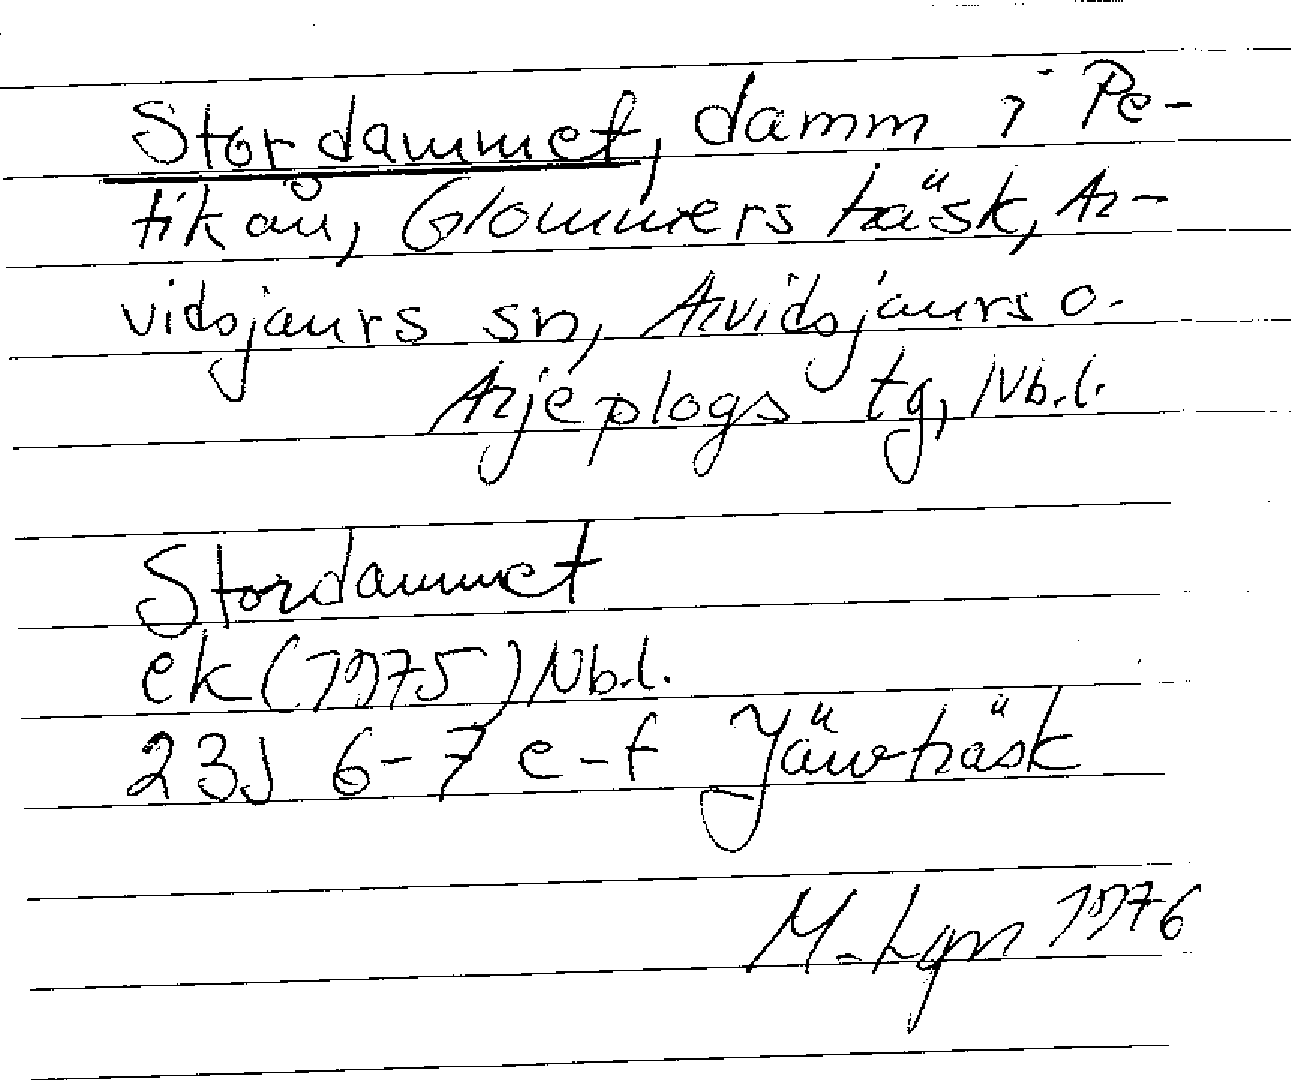 Stordammet, damm i Pe-
tikån, Glommersträsk, Ar-
vidsjaurs sn, Arvidsjaurs o.
Arjeplogs tg, Nb.l.
Stordammet
ek (1975) Nb.l.
23J 6-7 e-f Järvträsk
M-Lgn 1976